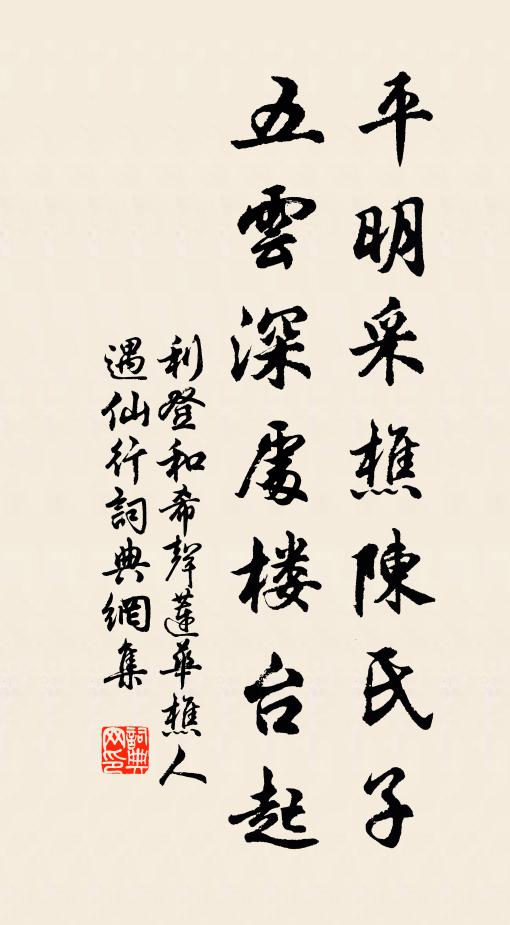 平明采樵陳氏子
五雲深處楼台起
利登和希聲蓮華樵人
遇仙行詞典網集
詞典网印